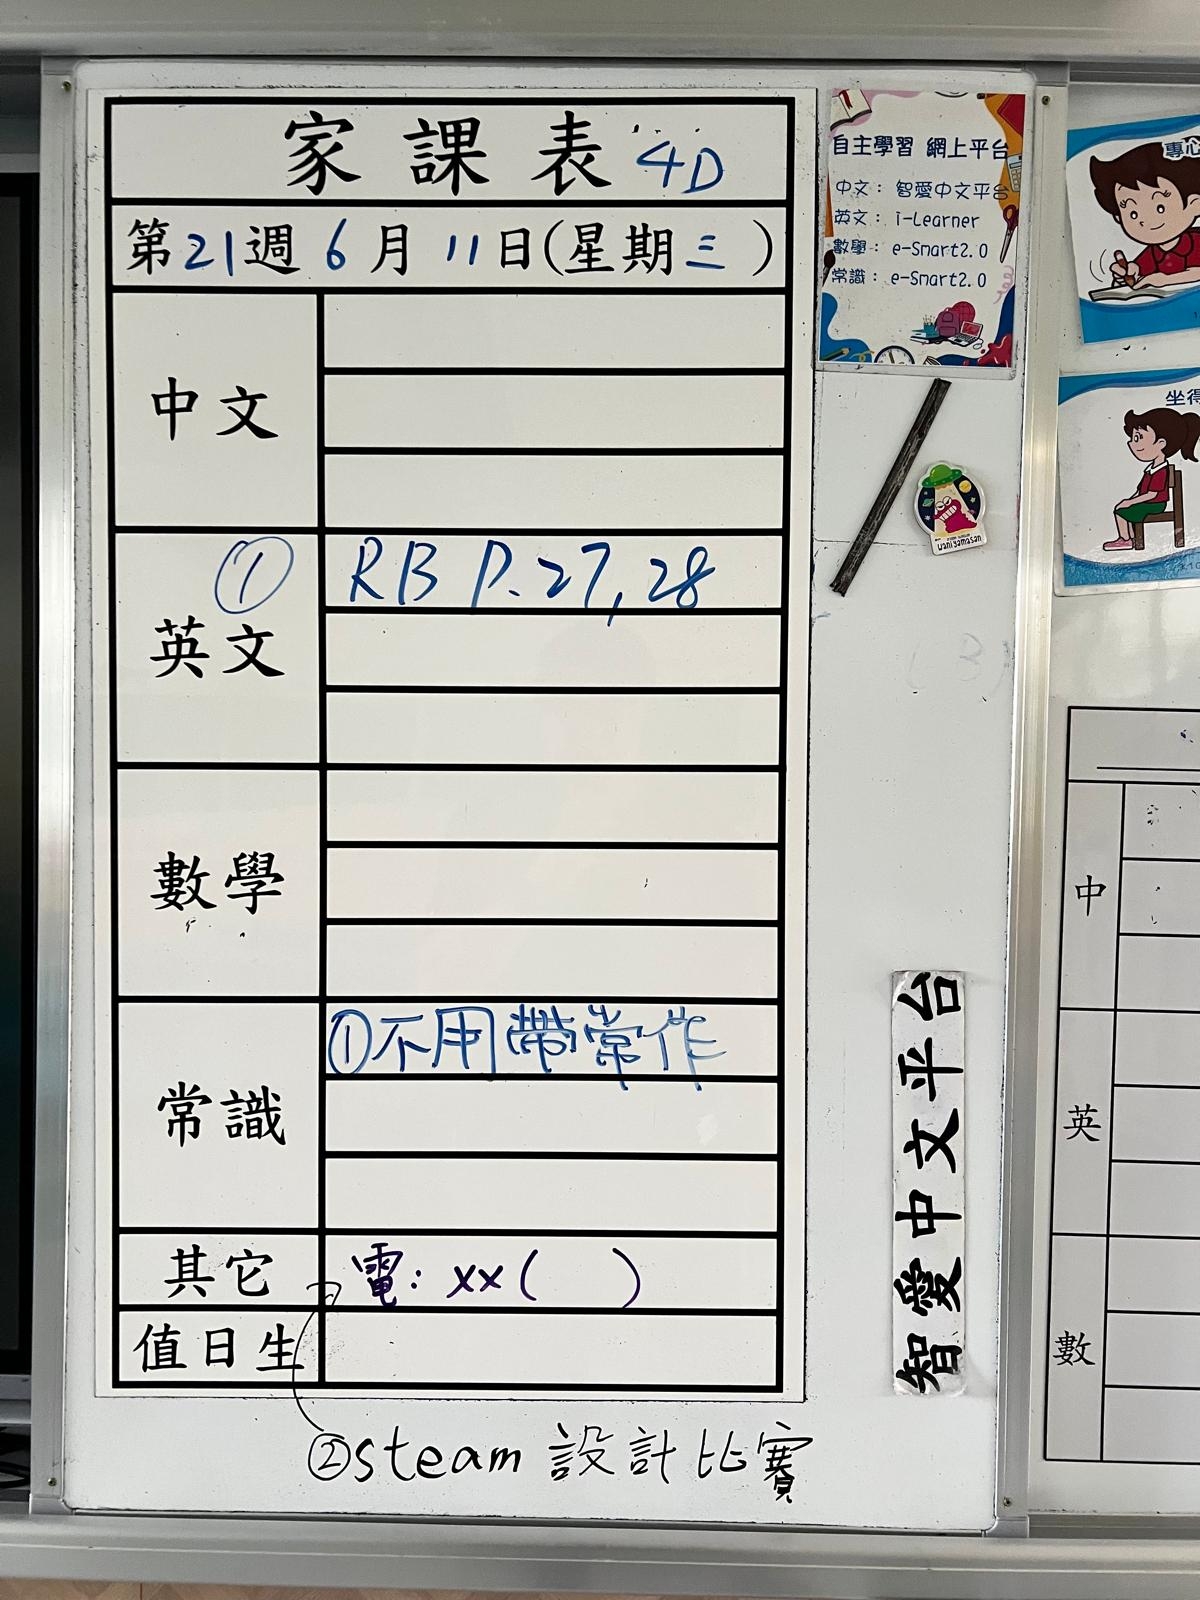 家課表 4D
第21週 6月11日(星期三)
中文
① RB P.27,28
英文
數學
①不用帶常作
常識
其它 電: xx( )
值日生
②steam 設計比賽
自主學習 網上平台
中文: 智愛中文平台
英文: i-Learner
數學: e-Smart2.0
常識: e-Smart2.0
waniyamasan
智愛中文平台
專心
坐得
中
英
數